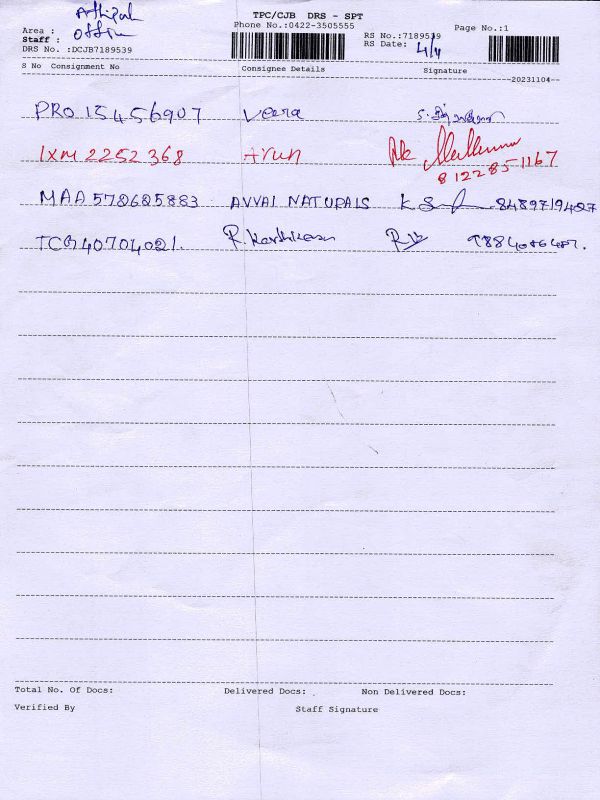 TPC/CJB DRS - SPT
Phone No.:0422-3505555
Page No.:1
Area :
Staff : Office
RS No.:7189539
RS Date: 4/4
DRS No. :DCJB7189539
S No Consignment No Consignee Details Signature
20231104
PRO 15456907 Veera
IXM 2252368 Arun
8122851167
MAA 578685883 AVVAI NATURALS 8489719427
R. Karthikeyan
Total No. Of Docs: Delivered Docs: Non Delivered Docs:
Verified By Staff Signature